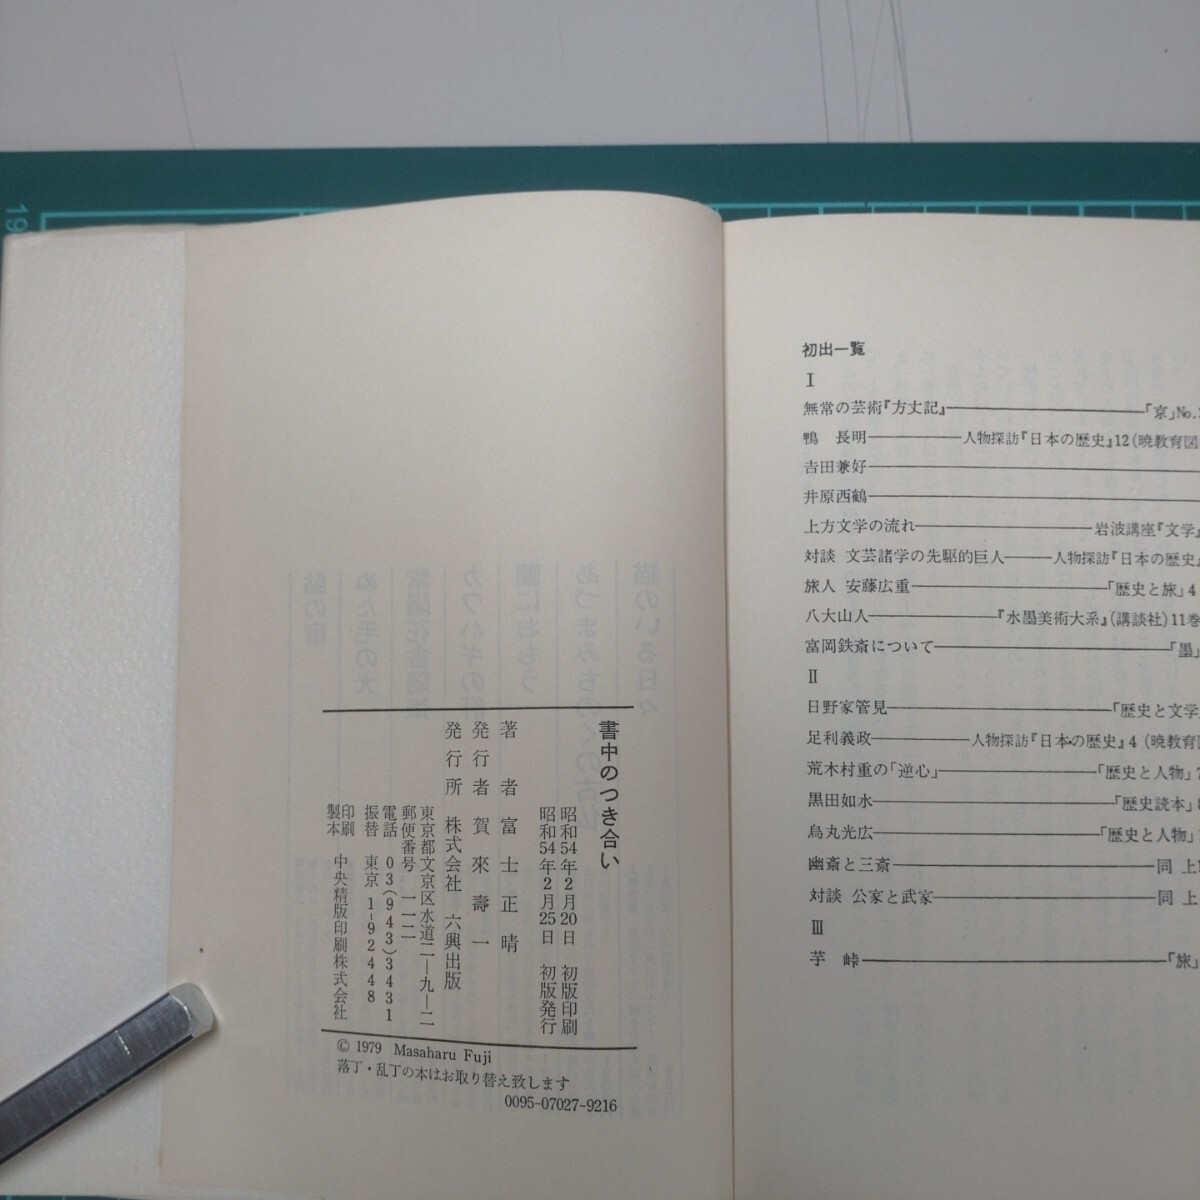 19
書中のつき合い
昭和54年2月20日 初版印刷
昭和54年2月25日 初版発行
著者 富士正晴
発行者 賀來壽一
発行所 株式会社 六興出版
東京都文京区水道二―九―二
郵便番号 一一二
電話 03(943)3431
振替 東京 1-92448
印刷 製本 中央精版印刷株式会社
© 1979 Masaharu Fuji
落丁・乱丁の本はお取り替え致します
0095-07027-9216
初出一覧
I
無常の芸術『方丈記』――「京」No.
鴨 長明――人物探訪『日本の歴史』12(暁教育図
吉田兼好――
井原西鶴――
上方文学の流れ――岩波講座『文学』
対談 文芸諸学の先駆的巨人――人物探訪『日本の歴史』
旅人 安藤広重――「歴史と旅」4
八大山人――『水墨美術大系』(講談社)11巻
富岡鉄斎について――「墨」
II
日野家管見――「歴史と文学」
足利義政――人物探訪『日本の歴史』4(暁教育図
荒木村重の「逆心」――「歴史と人物」7
黒田如水――「歴史読本」
烏丸光広――「歴史と人物」
幽斎と三斎――同 上
対談 公家と武家――同 上
III
芋 峠――「旅」